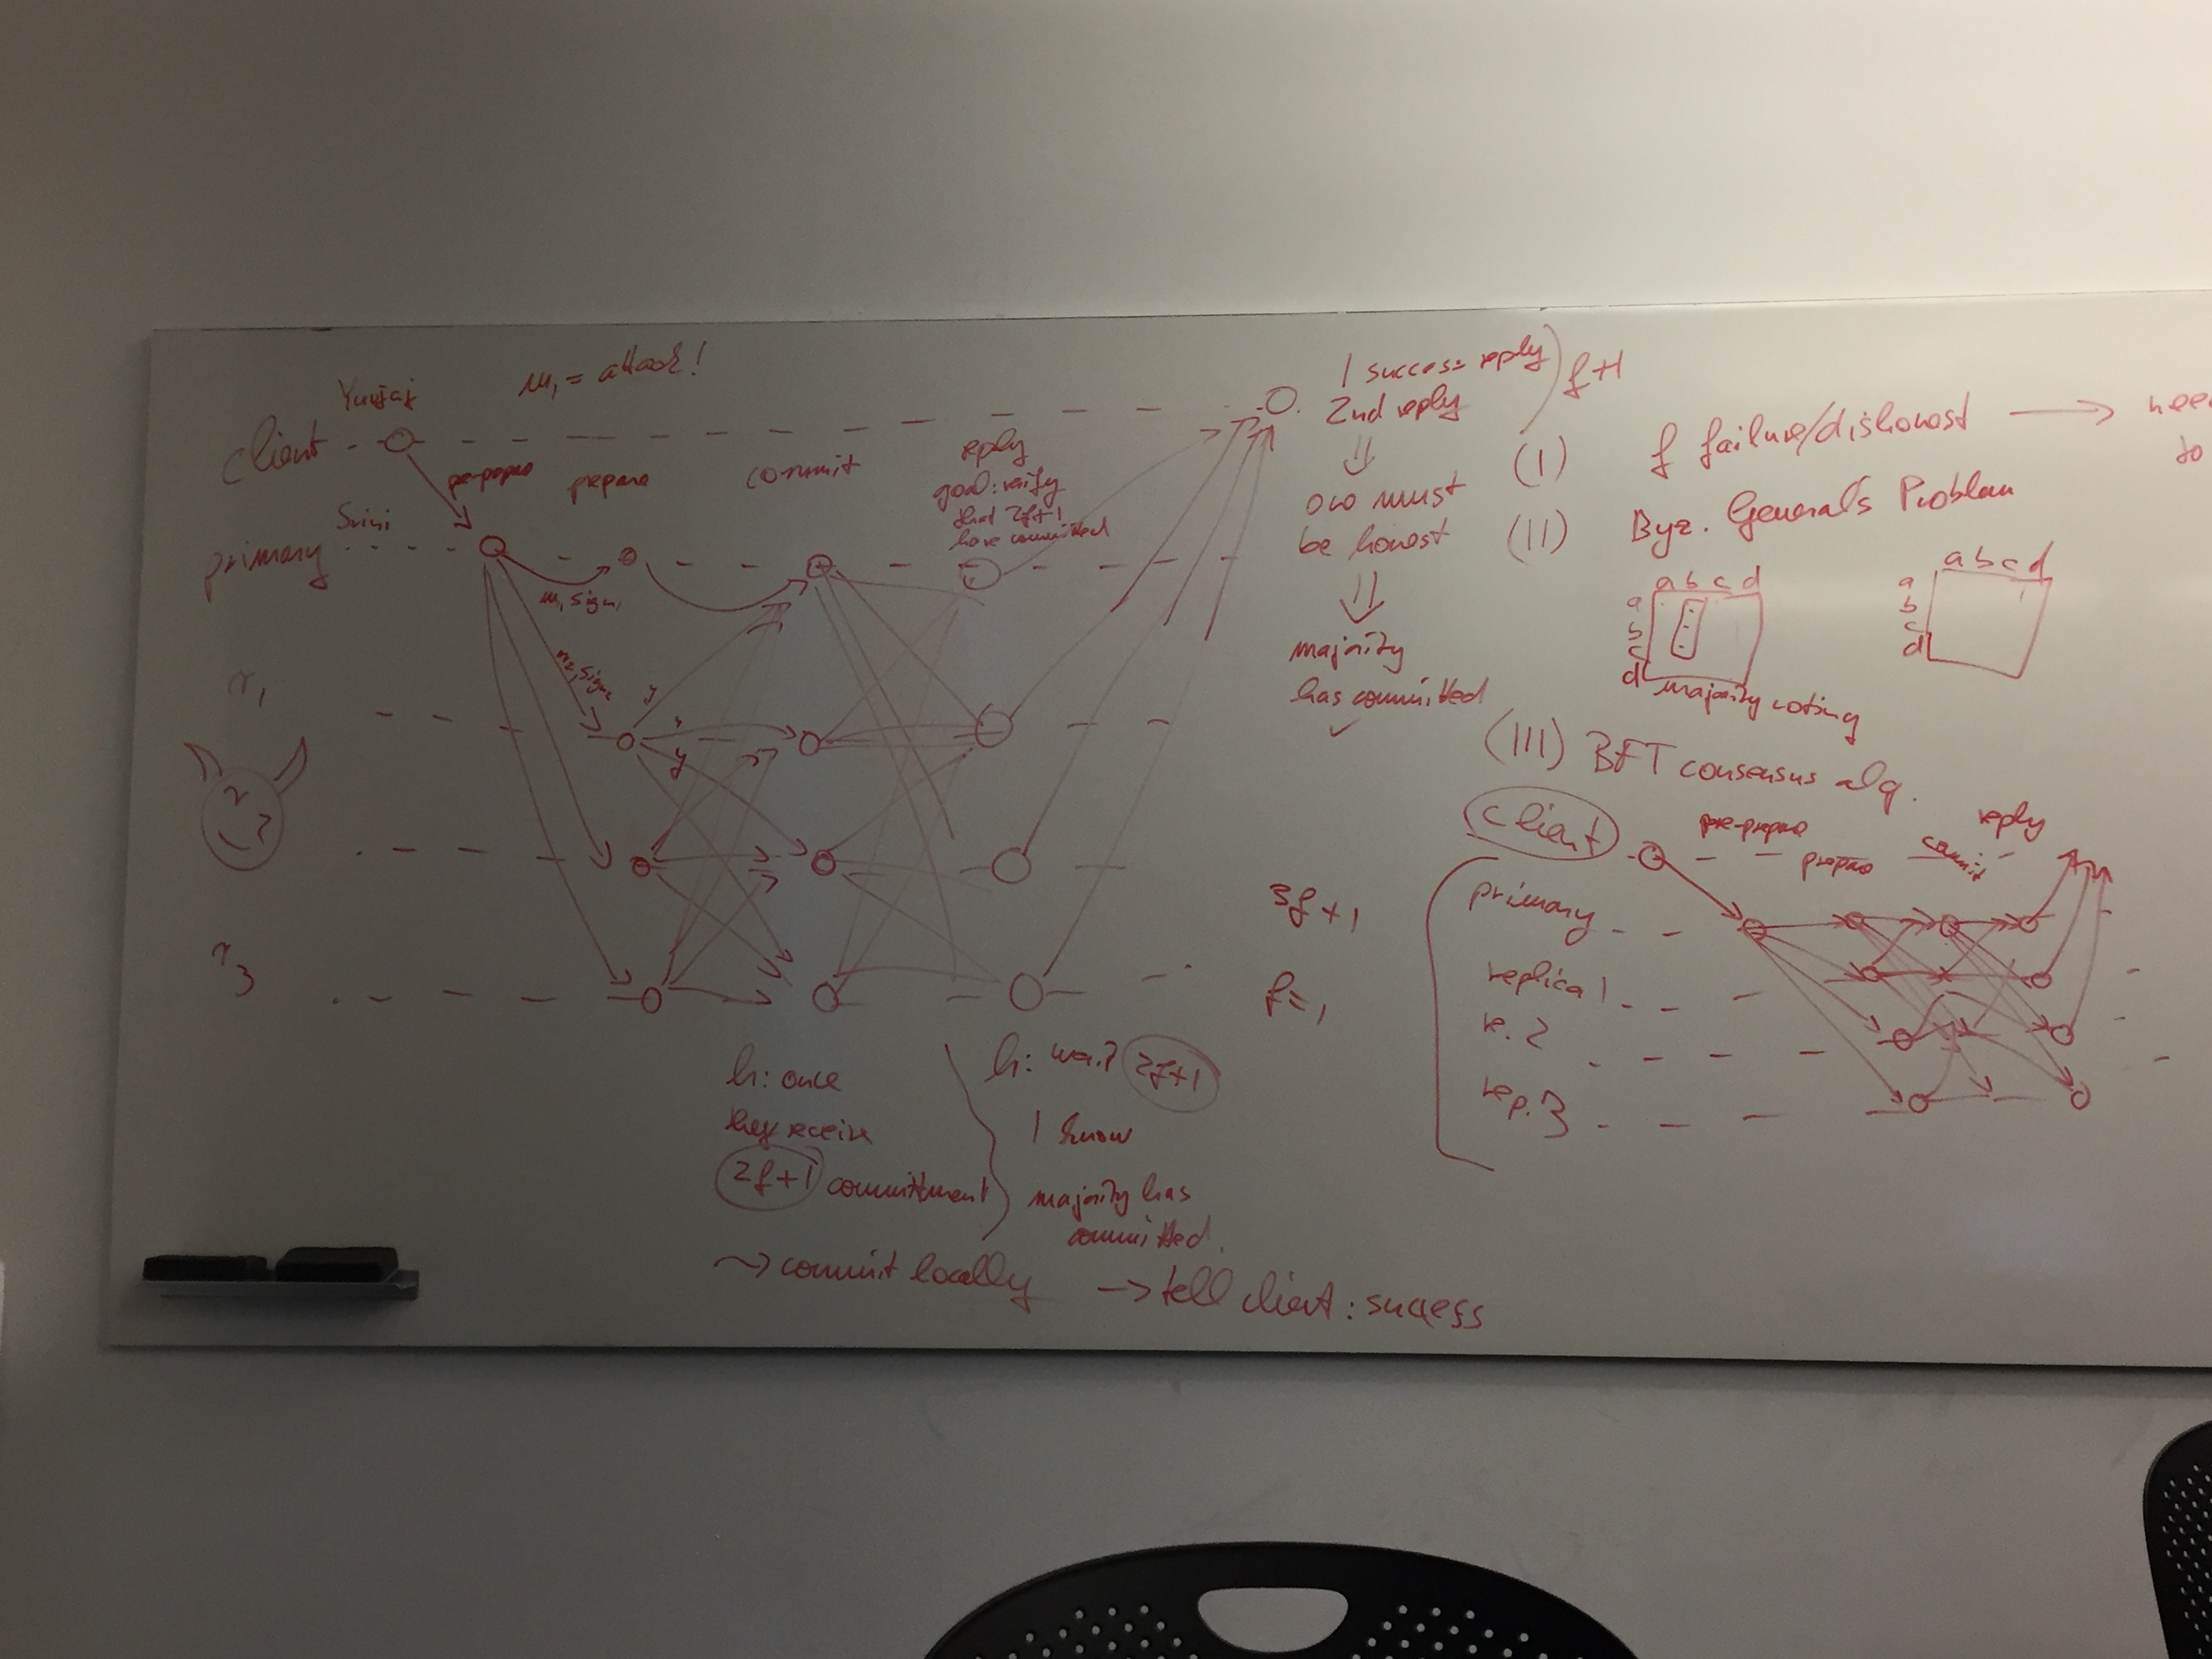 m₁ = attack!
client
pre-prepare
prepare
commit
reply
goal: verify
that 2f+1
have committed
primary
m, sign,
r₁
y
y
2
r₃
h: once
they receive
2f+1 commitment
~> commit locally
h: wait 2f+1
I know
majority has
committed.
-> tell client: success
1 success reply
2nd reply
f+1
⇓
one must
be honest
⇓
majority
has committed
✓
3f+1
f=1
(I) f failure/dishonest →
to
(II) Byz. General's Problem
a b c d
a
b
c
d
majority voting
a b c d
a
b
c
d
(III) BFT consensus alg.
client
pre-prepare
prepare
commit
reply
primary
replica 1
re. 2
rep. 3